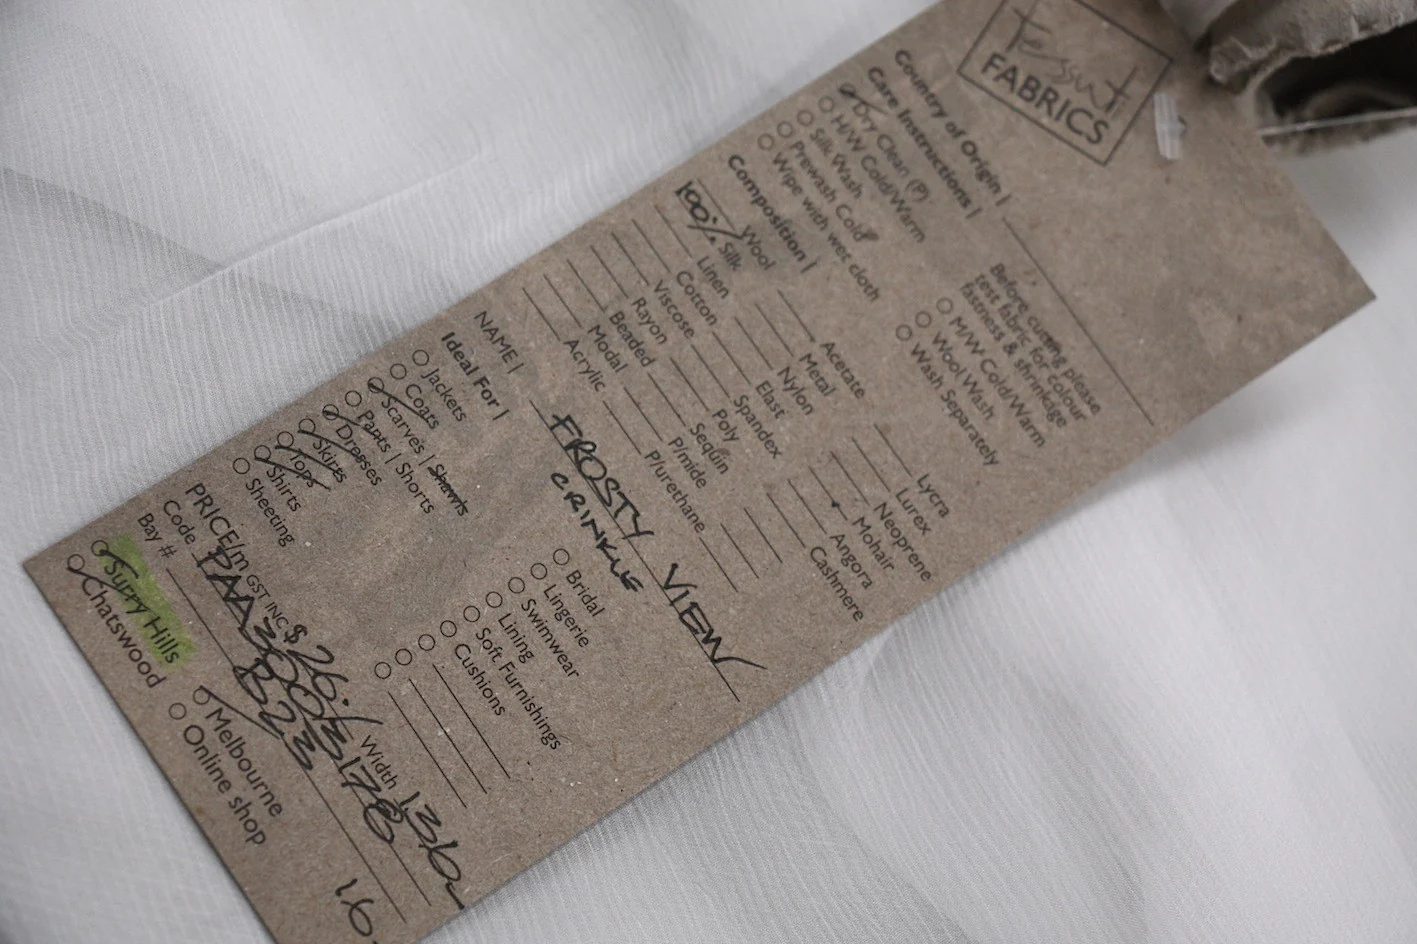 Tessuti
FABRICS
Country of Origin |
Care Instructions |
Dry Clean (P)
H/W Cold/Warm
Silk Wash
Prewash Cold
Wipe with wet cloth
Before cutting please
test fabric for colour
fastness & shrinkage
M/W Cold/Warm
Wool Wash
Wash Separately
Composition |
Wool
100% Silk
Linen
Cotton
Viscose
Rayon
Beaded
Modal
Acrylic
Acetate
Metal
Nylon
Elast
Spandex
Poly
Sequin
P/mide
P/urethane
Lycra
Lurex
Neoprene
Mohair
Angora
Cashmere
NAME | FROSTY VIEW
CRINKLE
Ideal For |
Jackets
Coats
Scarves | Shawls
Pants | Shorts
Dresses
Skirts
Tops
Shirts
Sheeting
Bridal
Lingerie
Swimwear
Lining
Soft Furnishings
Cushions
PRICE/m GST INC $26.- Width 136
Code PAA3003178
Bay # B23 1.6
Surry Hills
Chatswood
Melbourne
Online shop